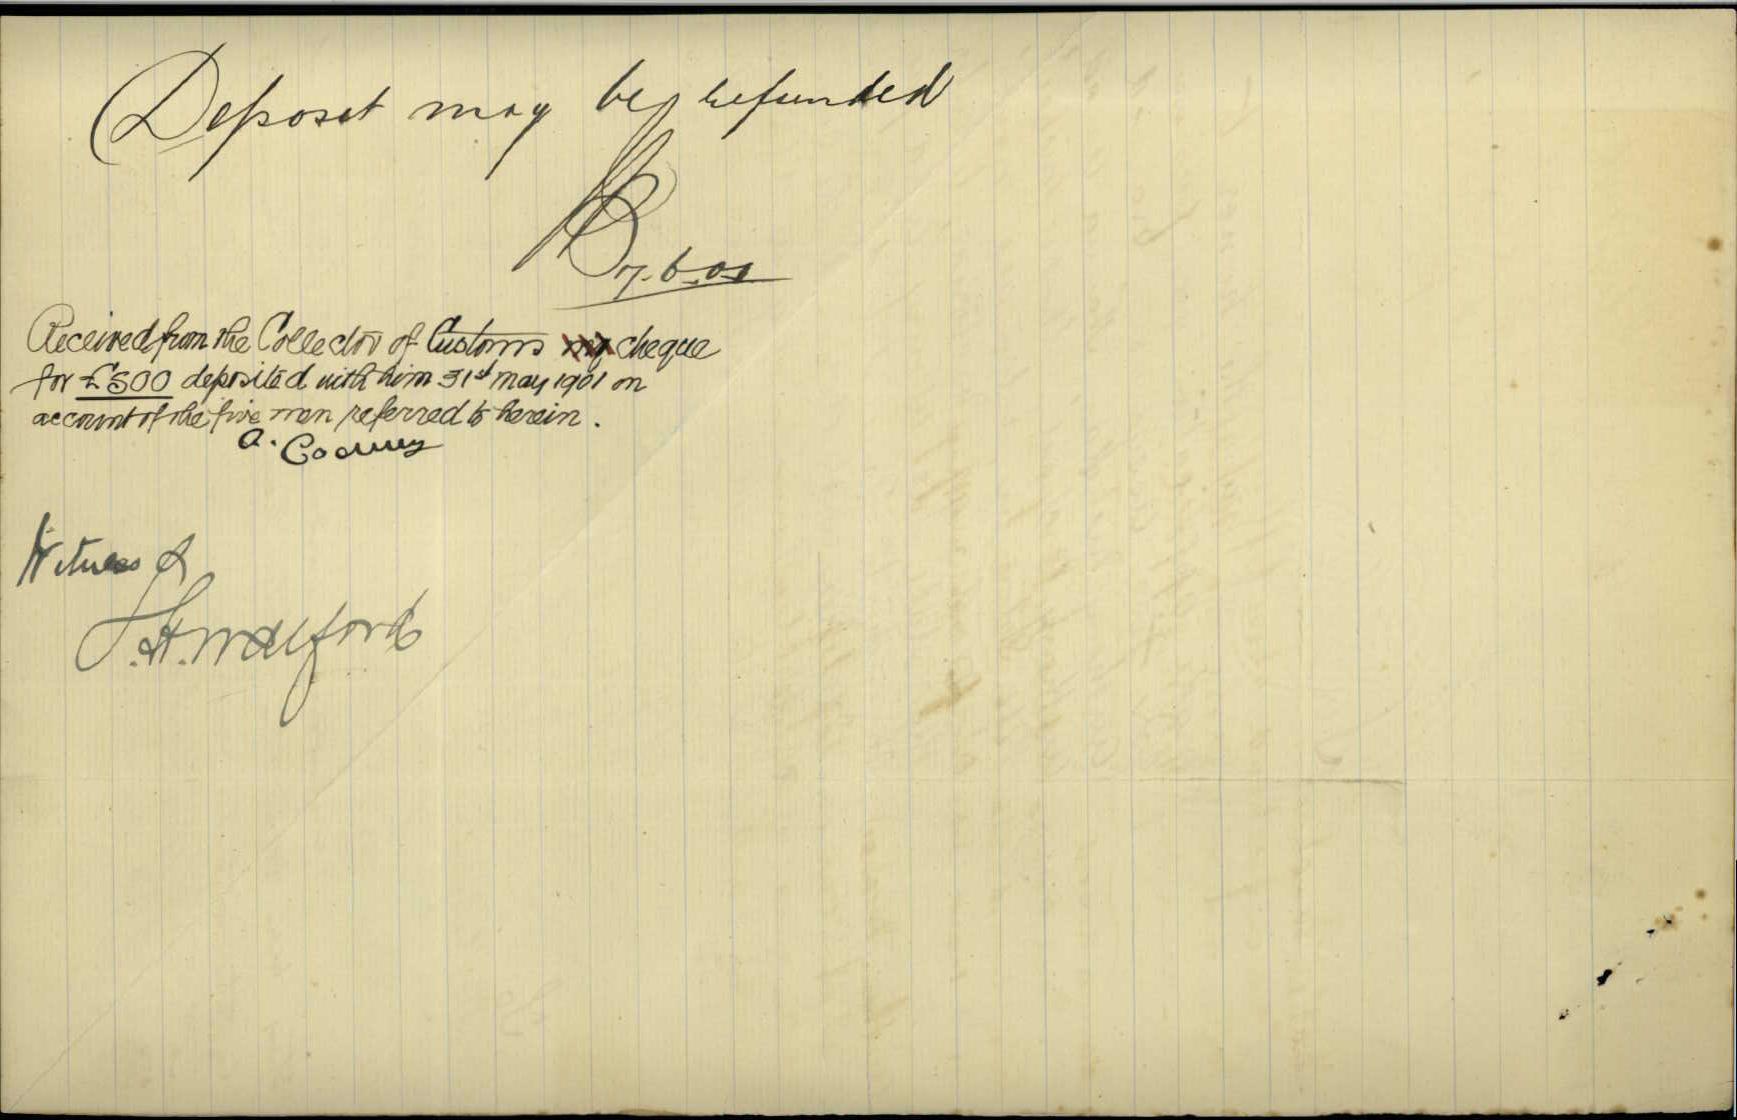 Deposit may be refunded
7.6.01
Received from the Collector of Customs my cheque
for £500 deposited with him 31st May 1901 on
account of the five men referred to herein.
A.
Witness
J.H. Walford